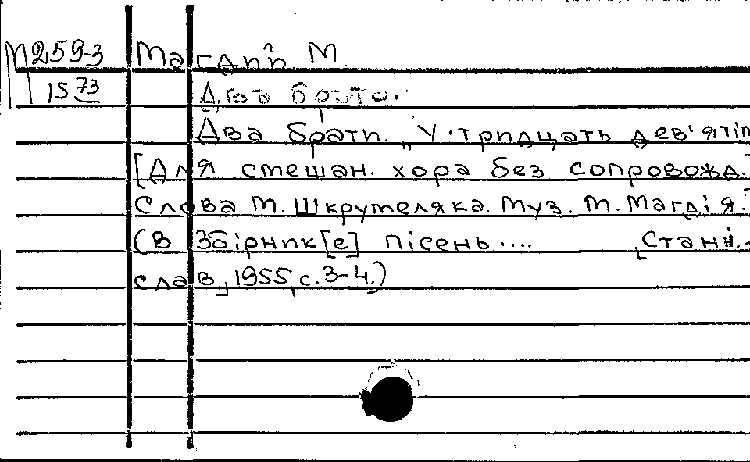 М259-3 Магдій М.
1573 Два брата.
Два брати. „У тридцать дев'яті
[Для смешан. хора без сопровожд.
Слова М. Шкрумеляка. Муз. М. Магдія.]
(В Збірник[е] пісень.... [Стані-
слав], 1955, с. 3-4.)